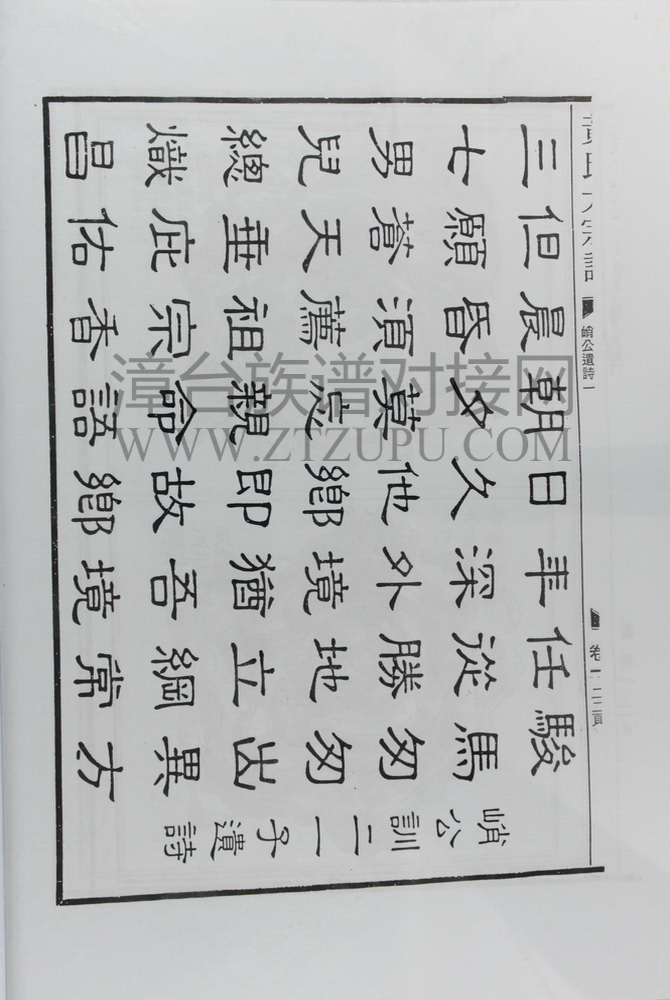 峭公遺詩一
峭公訓二一子遺詩
駿馬匆匆出異方
任從勝地立綱常
年深外境猶吾境
日久他鄉即故鄉
朝夕莫忘親命語
晨昏須薦祖宗香
但願蒼天垂庇佑
三七男兒總熾昌
漳台族谱对接网
WWW.ZTZUPU.COM